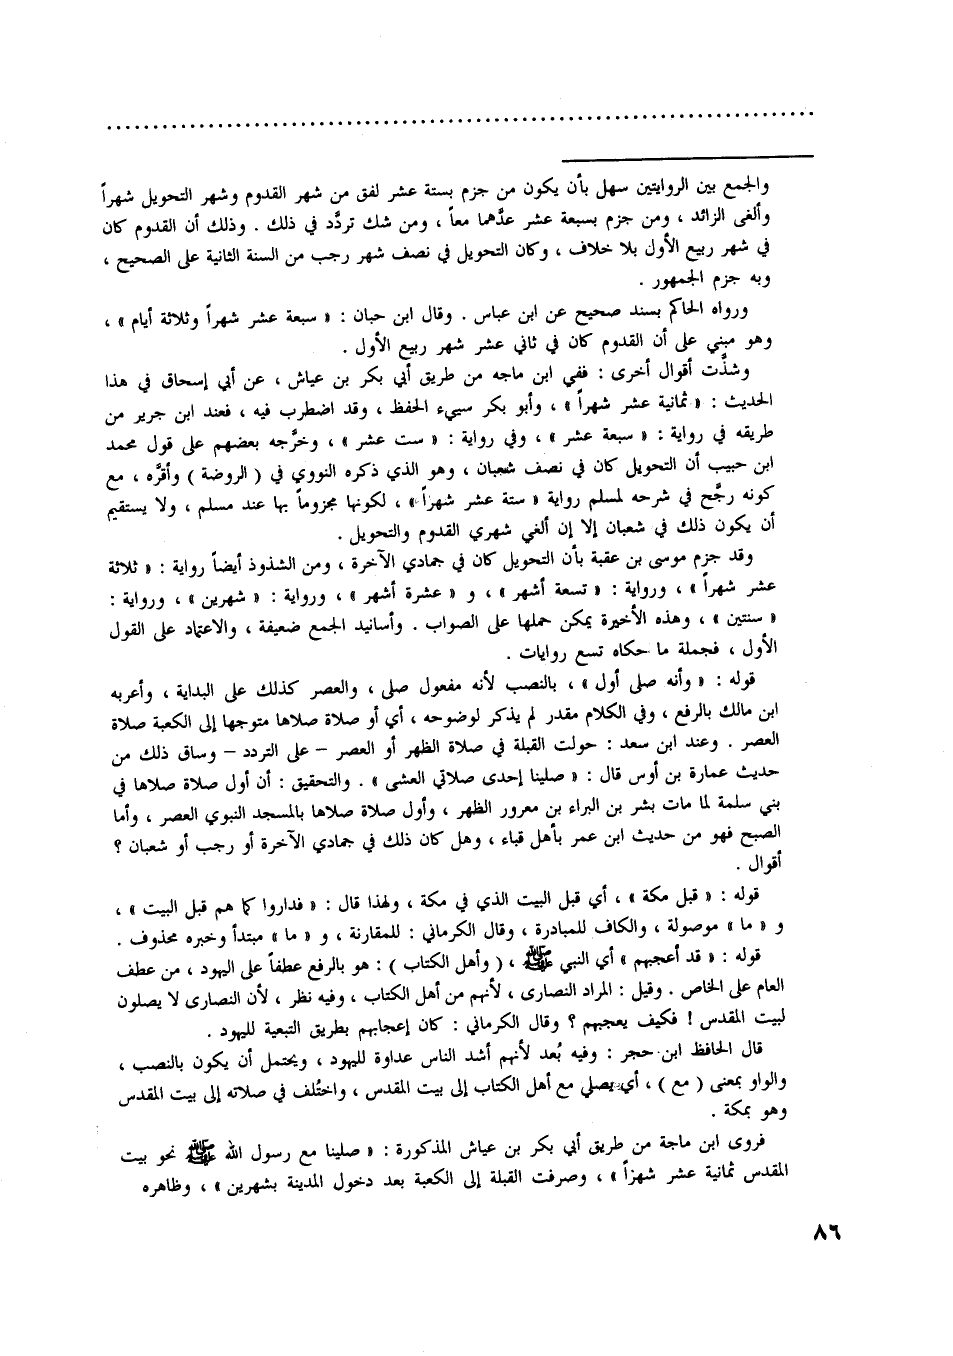 والجمع بين الروايتين سهل بأن يكون من جزم بستة عشر لفق من شهر القدوم وشهر التحويل شهراً
وألغى الزائد ، ومن جزم بسبعة عشر عدَّهما معاً ، ومن شك تردَّد في ذلك . وذلك أن القدوم كان
في شهر ربيع الأول بلا خلاف ، وكان التحويل في نصف شهر رجب من السنة الثانية على الصحيح ،
وبه جزم الجمهور .
ورواه الحاكم بسند صحيح عن ابن عباس . وقال ابن حبان : « سبعة عشر شهراً وثلاثة أيام » ،
وهو مبني على أن القدوم كان في ثاني عشر شهر ربيع الأول .
وشذَّت أقوال أخرى : ففي ابن ماجه من طريق أبي بكر بن عياش ، عن أبي إسحاق في هذا
الحديث : « ثمانية عشر شهراً » ، وأبو بكر سييء الحفظ ، وقد اضطرب فيه ، فعند ابن جرير من
طريقه في رواية : « سبعة عشر » ، وفي رواية : « ست عشر » ، وخرَّجه بعضهم على قول محمد
ابن حبيب أن التحويل كان في نصف شعبان ، وهو الذي ذكره النووي في ( الروضة ) وأقرَّه ، مع
كونه رجَّح في شرحه لمسلم رواية « ستة عشر شهراً » ، لكونها مجزوماً بها عند مسلم ، ولا يستقيم
أن يكون ذلك في شعبان إلا إن ألغي شهري القدوم والتحويل .
وقد جزم موسى بن عقبة بأن التحويل كان في جمادي الآخرة ، ومن الشذوذ أيضاً رواية : « ثلاثة
عشر شهراً » ، ورواية : « تسعة أشهر » ، و « عشرة أشهر » ، ورواية : « شهرين » ، ورواية :
« سنتين » ، وهذه الأخيرة يمكن حملها على الصواب . وأسانيد الجمع ضعيفة ، والاعتماد على القول
الأول ، فجملة ما حكاه تسع روايات .
قوله : « وأنه صلى أول » ، بالنصب لأنه مفعول صلى ، والعصر كذلك على البداية ، وأعربه
ابن مالك بالرفع ، وفي الكلام مقدر لم يذكر لوضوحه ، أي أو صلاة صلاها متوجها إلى الكعبة صلاة
العصر . وعند ابن سعد : حولت القبلة في صلاة الظهر أو العصر – على التردد – وساق ذلك من
حديث عمارة بن أوس قال : « صلينا إحدى صلاتي العشى » . والتحقيق : أن أول صلاة صلاها في
بني سلمة لما مات بشر بن البراء بن معرور الظهر ، وأول صلاة صلاها بالمسجد النبوي العصر ، وأما
الصبح فهو من حديث ابن عمر بأهل قباء ، وهل كان ذلك في جمادي الآخرة أو رجب أو شعبان ؟
أقوال .
قوله : « قبل مكة » ، أي قبل البيت الذي في مكة ، ولهذا قال : « فداروا كما هم قبل البيت » ،
و « ما » موصولة ، والكاف للمبادرة ، وقال الكرماني : للمقارنة ، و « ما » مبتدأ وخبره محذوف .
قوله : « قد أعجبهم » أي النبي ﷺ ، ( وأهل الكتاب ) : هو بالرفع عطفاً على اليهود ، من عطف
العام على الخاص . وقيل : المراد النصارى ، لأنهم من أهل الكتاب ، وفيه نظر ، لأن النصارى لا يصلون
لبيت المقدس ! فكيف يعجبهم ؟ وقال الكرماني : كان إعجابهم بطريق التبعية لليهود .
قال الحافظ ابن حجر : وفيه بُعد لأنهم أشد الناس عداوة لليهود ، ويحتمل أن يكون بالنصب ،
والواو بمعنى ( مع ) ، أي يصلي مع أهل الكتاب إلى بيت المقدس ، واختُلف في صلاته إلى بيت المقدس
وهو بمكة .
فروى ابن ماجة من طريق أبي بكر بن عياش المذكورة : « صلينا مع رسول الله ﷺ نحو بيت
المقدس ثمانية عشر شهراً » ، وصرفت القبلة إلى الكعبة بعد دخول المدينة بشهرين » ، وظاهره
٨٦